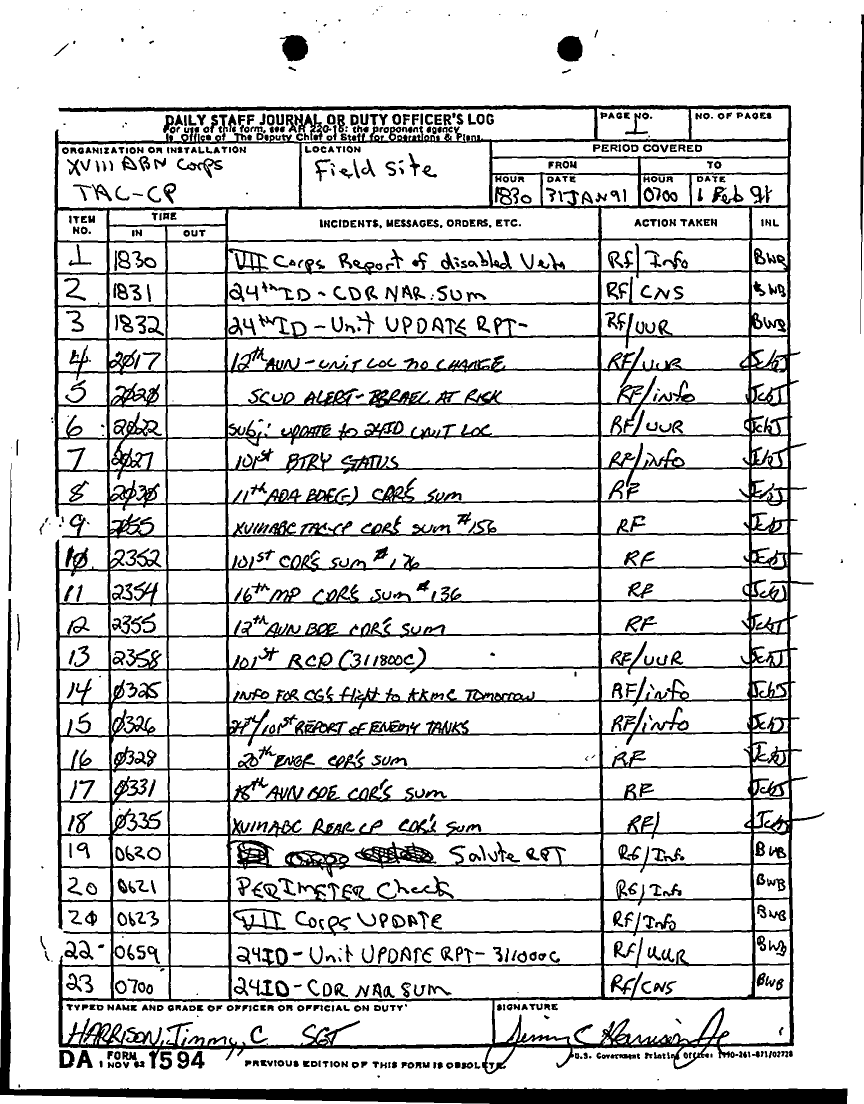 DAILY STAFF JOURNAL OR DUTY OFFICER'S LOG
For use of this form, see AR 220-15; the proponent agency
is Office of The Deputy Chief of Staff for Operations & Plans.
PAGE NO.
1
NO. OF PAGES
ORGANIZATION OR INSTALLATION
XVIII ABN Corps
TAC-CP
LOCATION
Field Site
PERIOD COVERED
FROM TO
HOUR DATE HOUR DATE
1830 31 JAN 91 0700 1 Feb 91
ITEM NO. TIME INCIDENTS, MESSAGES, ORDERS, ETC. ACTION TAKEN INL
IN OUT
1 1830 VII Corps Report of disabled Veh Rf/Info BWB
2 1831 24th ID - CDR NAR. SUM RF/CNS BWB
3 1832 24th ID - Unit UPDATE RPT- Rf/UUR BWB
4 2017 12th AVN - UNIT LOC NO CHANGE RF/UUR JchJ
5 2020 SCUD ALERT - ISRAEL AT RISK RF/info JchJ
6 2022 Subj: UPDATE to 24ID UNIT LOC RF/UUR JchJ
7 2027 101st BTRY STATUS RF/info JchJ
8 2030 11th ADA BDE(-) CDR'S SUM RF JchJ
9 2055 XVIIIABC TAC-CP CDR'S SUM #156 RF JchJ
10 2352 101st CDR'S SUM # 176 RF JchJ
11 2354 16th MP CDR'S SUM # 136 RF JchJ
12 2355 12th AVN BDE CDR'S SUM RF JchJ
13 2358 101st RCD (311800C) RF/UUR JchJ
14 0325 INFO FOR CG's flight to KKMC TOMORROW RF/info JchJ
15 0326 24th/101st REPORT OF ENEMY TANKS RF/info JchJ
16 0328 20th ENGR CDR'S SUM RF JchJ
17 0331 18th AVN BDE CDR'S SUM RF JchJ
18 0335 XVIIIABC REAR CP CDR'S SUM RF/ JchJ
19 0620 Salute RPT Rf/Info BWB
20 0621 PERIMETER Check Rf/Info BWB
21 0623 VII Corps UPDATE Rf/Info BWB
22 0659 24ID - Unit UPDATE RPT - 311000C Rf/UUR BWB
23 0700 24ID - CDR NAR SUM Rf/CNS BWB
TYPED NAME AND GRADE OF OFFICER OR OFFICIAL ON DUTY
HARRISON, Jimmy, C SGT
SIGNATURE
Jimmy C Harrison Jr
DA FORM 1 NOV 62 1594
PREVIOUS EDITION OF THIS FORM IS OBSOLETE.
*U.S. Government Printing Office: 1990-261-871/02728